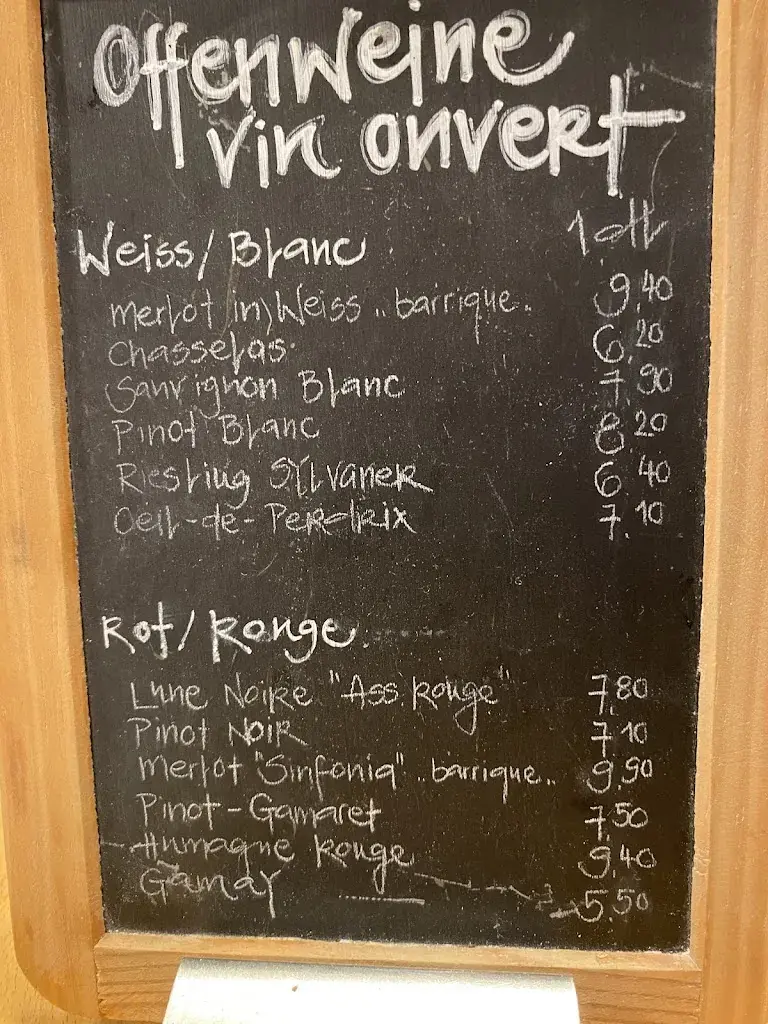 Offenweine
vin onvert
Weiss/Blanc 1 dl
Merlot in Weiss "barrique" 9.40
Chasselas 6.20
Sauvignon Blanc 7.90
Pinot Blanc 8.20
Riesling Sylvaner 6.40
Oeil-de-Perdrix 7.10
Rot/Rouge
Lune Noire "Ass Rouge" 7.80
Pinot Noir 7.10
Merlot "Sinfonia" "barrique" 9.90
Pinot-Gamaret 7.50
Humagne Rouge 9.40
Gamay 5.50